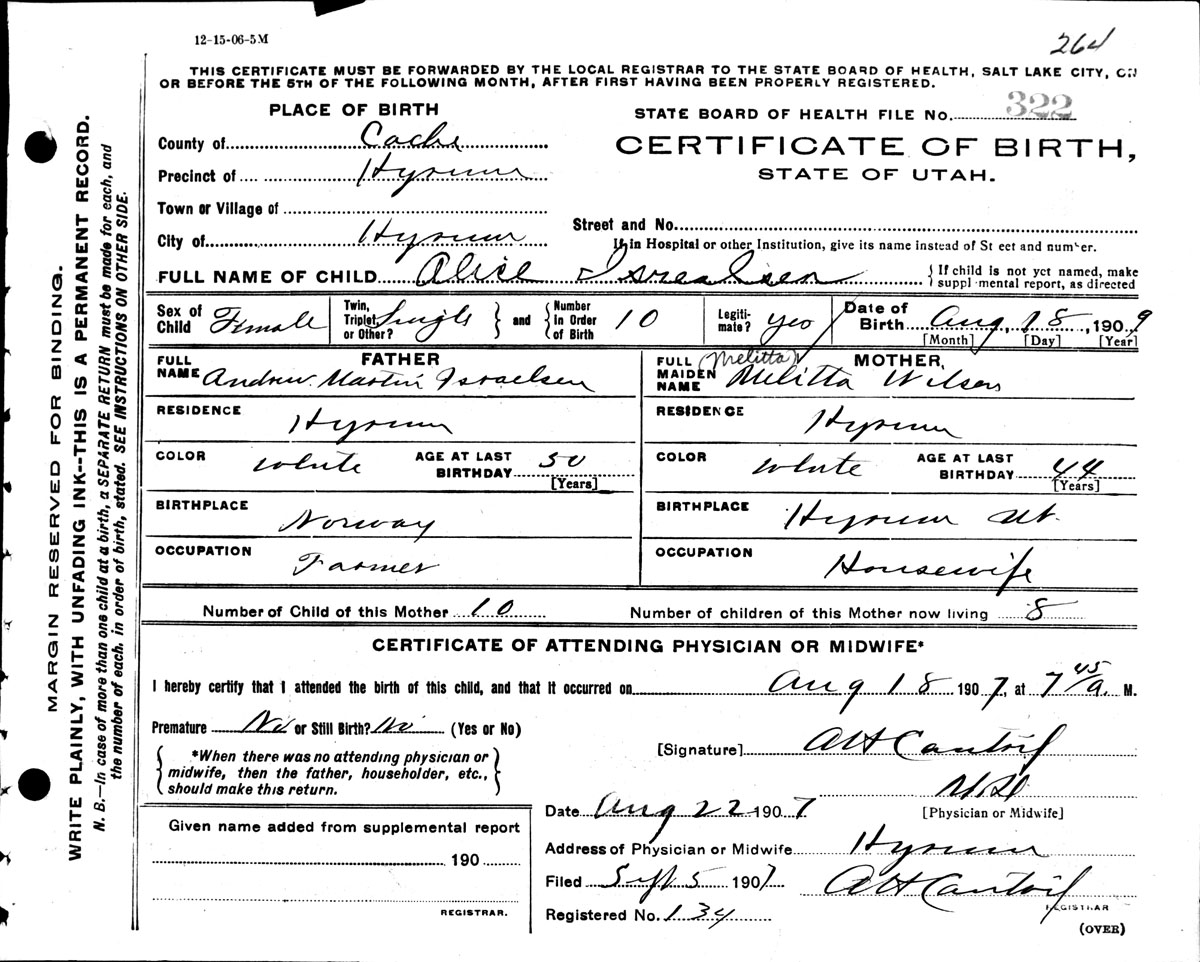 12-15-06-5M
264
THIS CERTIFICATE MUST BE FORWARDED BY THE LOCAL REGISTRAR TO THE STATE BOARD OF HEALTH, SALT LAKE CITY, ON
OR BEFORE THE 5TH OF THE FOLLOWING MONTH, AFTER FIRST HAVING BEEN PROPERLY REGISTERED.
PLACE OF BIRTH
STATE BOARD OF HEALTH FILE No. 322
County of Cache
CERTIFICATE OF BIRTH,
Precinct of Hyrum
STATE OF UTAH.
Town or Village of
Street and No.
City of Hyrum
If in Hospital or other Institution, give its name instead of St eet and number.
FULL NAME OF CHILD Alice Isrealsen
{ If child is not yet named, make
suppl mental report, as directed
Sex of Child Female
Twin, Triplet, or Other? Single } and { Number in Order of Birth 10
Legiti-mate? yes
Date of Birth Aug 18, 1909
[Month] [Day] [Year]
FATHER
FULL NAME Andrew Martin Israelsen
RESIDENCE Hyrum
COLOR white AGE AT LAST BIRTHDAY 50
[Years]
BIRTHPLACE Norway
OCCUPATION Farmer
MOTHER,
Melitta
FULL MAIDEN NAME Melitta Wilson
RESIDENCE Hyrum
COLOR white AGE AT LAST BIRTHDAY 44
[Years]
BIRTHPLACE Hyrum Ut.
OCCUPATION Housewife
Number of Child of this Mother 10 Number of children of this Mother now living 8
CERTIFICATE OF ATTENDING PHYSICIAN OR MIDWIFE*
I hereby certify that I attended the birth of this child, and that it occurred on Aug 18 1907, at 7 45 a. M.
Premature No or Still Birth? No (Yes or No)
*When there was no attending physician or
midwife, then the father, householder, etc.,
should make this return.
[Signature]
M.D
[Physician or Midwife]
Date Aug 22 1907
Address of Physician or Midwife Hyrum
Filed Sept 5 1907
REGISTRAR
Registered No. 134
(OVER)
Given name added from supplemental report
190
REGISTRAR.
MARGIN RESERVED FOR BINDING.
WRITE PLAINLY, WITH UNFADING INK--THIS IS A PERMANENT RECORD.
N. B.—In case of more than one child at a birth, a SEPARATE RETURN must be made for each, and
the number of each, in order of birth, stated. SEE INSTRUCTIONS ON OTHER SIDE.